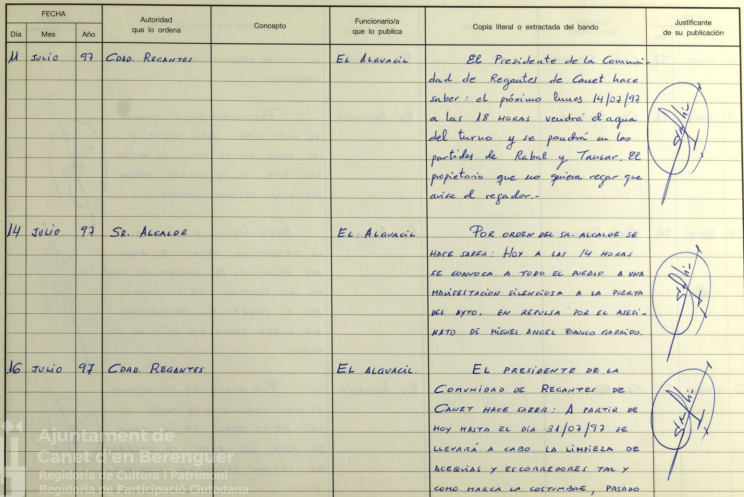 FECHA
Día Mes Año
Autoridad
que lo ordena
Concepto
Funcionario/a
que lo publica
Copia literal o extractada del bando
Justificante
de su publicación
11 JULIO 97 CDAD. REGANTES EL ALGUACIL
El Presidente de la Comuni-
dad de Regantes de Canet hace
saber: el próximo lunes 14/07/97
a las 18 HORAS vendrá el agua
del turno y se pondrá en las
partidas de Rabal y Tancar. El
propietario que no quiera regar que
avise al regador.-
14 JULIO 97 SR. ALCALDE EL ALGUACIL
POR ORDEN DEL SR. ALCALDE SE
HACE SABER: HOY A LAS 14 HORAS
SE CONVOCA A TODO EL PUEBLO A UNA
MANIFESTACION SILENCIOSA A LA PUERTA
DEL AYTO. EN REPULSA POR EL ASESI-
NATO DE MIGUEL ANGEL BLANCO GARRIDO.
16 JULIO 97 CDAD. REGANTES EL ALGUACIL.
EL PRESIDENTE DE LA
COMUNIDAD DE REGANTES DE
CANET HACE SABER: A PARTIR DE
HOY HASTA EL DIA 31/07/97 SE
LLEVARÁ A CABO LA LIMPIEZA DE
ACEQUIAS Y ESCORREDORES TAL Y
COMO MARCA LA COSTUMBRE, PASADO
Ajuntament de
Canet d'en Berenguer
Regidoria de Cultura i Patrimoni
Regidoria de Participació Ciutadana